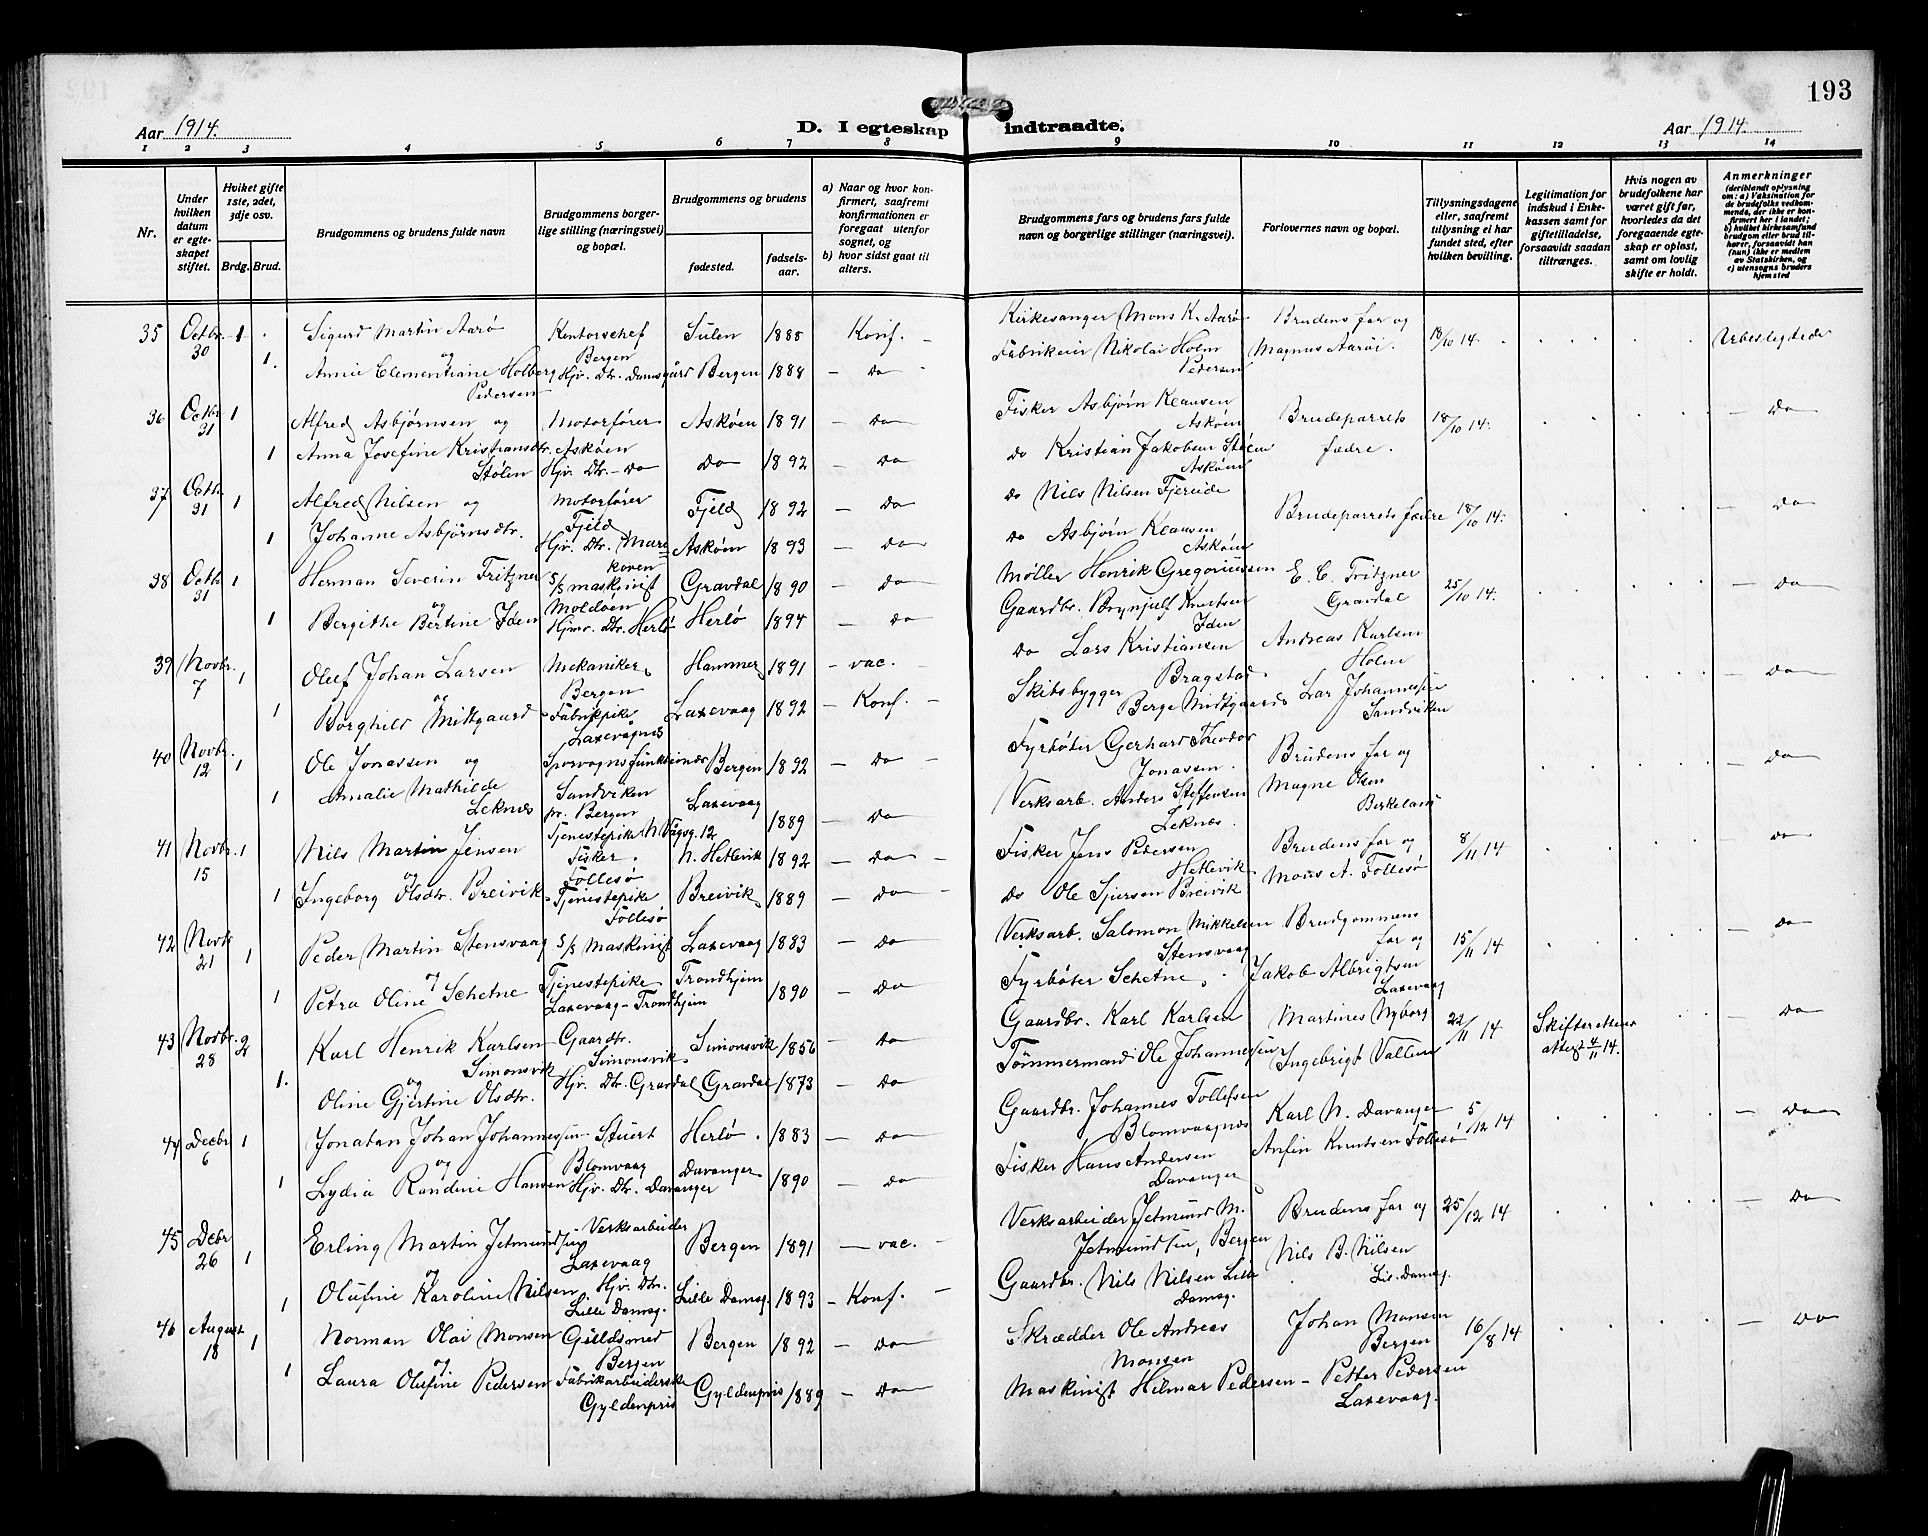 193
Aar 1914.
D. I egteskap indtraadte.
Aar 1914.
1 2 3 4 5 6 7 8 9 10 11 12 13 14
Nr.
Under hvilken datum er egteskapet stiftet.
Hviket gifte 1ste, 2det, 3dje osv.
Brdg. Brud.
Brudgommens og brudens fulde navn
Brudgommens borgerlige stilling (næringsvei) og bopæl.
Brudgommens og brudens
fødested.
fødselsaar.
a) Naar og hvor konfirmert, saafremt konfirmationen er foregaat utenfor sognet, og
b) hvor sidst gaat til alters.
Brudgommens fars og brudens fars fulde navn og borgerlige stillinger (næringsvei).
Forlovernes navn og bopæl.
Tillysningsdagene eller, saafremt tillysning ei har fundet sted, efter hvilken bevilling.
Legitimation for indskud i Enkekassen samt for giftetilladelse, forsaavidt saadan tiltrænges.
Hvis nogen av brudefolkene har været gift før, hvorledes da det foregaaende egteskap er opløst, samt om lovlig skifte er holdt.
Anmerkninger
(deriblandt oplysning om: a) Vaksination for de brudefolks vedkommende, der ikke er konfirmert her i landet; b) hvilket kirkesamfund brudgom eller brud tilhører, forsaavidt han (hun) ikke er medlem av Statskirken, og c) utensogns bruders hjemsted
35 Octbr. 30 1 Sigurd Martin Aarø Kontorschef Bergen Sulen 1885 Konf. Kirkesanger Mons K. Aarø Brudens far og 18/10 14. Ubeslegtede
og
1. Annie Clementiane Holberg Pedersen Hjv. Dtr. Damsgård Bergen 1888 - Do Fabrikeier Nikolai Holm Pedersen Magnus Aarøi.
36 Octbr 31 1 Alfred Asbjørnsen og Motorfører Askøen Askøen 1891 - Do Fisker Asbjørn Klausen Askøen Brudeparrets 18/10 14. - Do
1 Anna Josefine Kristiansdtr. Stølen Hjv. Dtr. - Do Do 1892 - Do Do Kristian Jakobsen Stølen Askøen fædre.
37 Octb. 31 1 Alfred Nilsen og Motorfører Fjeld Fjeld 1892 - Do Do Nils Nilsen Fjereide Brudeparrets fædre 18/10 14. - Do
1 Johanne Asbjørnsdtr. Hjv. Dtr. Marekoven Askøen 1893 - Do Do Asbjørn Klausen Askøen
38 Octb. 31 1 Herman Severin Fritzner S/S maskinist Moldøen Gravdal 1890 - Do Møller Henrik Gregoriussen E. C. Fritzner Gravdal 25/10 14. - Do
og
1 Bergithe Bertine Iden Hjmv. Dtr. Herlø Herlø 1894 - Do Gaardbr. Brynjulf Knutsen Iden
39 Novbr. 7 1 Oluf Johan Larsen Mekaniker Bergen Hammer 1891 - vac. - Do Lars Kristiansen Bragstad Andreas Karlsen Holm - Do
og
1 Borghild Midtgaard Fabrikpike Laxevågnes Laxevaag 1892 - Konf. - Skibsbygger Berge Midtgaard Lar Johannessen Sandviken
40 Novbr. 12 1 Ole Jonassen og Sporvognsfunktionær Sandviken Bergen 1892 - Do - Fyrbøter Gerhard Theodor Jonassen. Brudens far og - Do
1 Amalie Mathilde Leknes pr. Bergen Tjenestepike N. Vågsg. 12 Laxevaag 1889 - Do Verksarb. Anders Steffensen Leknes. Magne Olsen Birkeland
41 Novbr. 15 1 Nils Martin Jensen Fisker. Follesø N. Hetlevik 1892 - Do - Fisker Jens Pedersen Hetlevik Brudens far og 8/11 14 - Do
og
1 Ingeborg Olsdtr. Breivik Tjenestepike Follesø Breivik 1889 - Do Do Ole Sjursen Breivik Mons A. Follesø
42 Novb 21 1 Peder Martin Stensvaag S/S Maskinist Laxevaag 1883 - Do Verksarb. Salomon Mikkelsen Stensvaag Brudgommens far og 15/11 14 - Do
og
1 Petra Oline Schetne Tjenestepike Laxevaag - Trondhjem Trondhjem 1890 - Do Fyrbøter Schetne. Jakob Albrigtsen Laxevaag
43 Novbr. 28 2 Karl Henrik Karlsen Simonsvik Gaardbr. Simonsvik Simonsvik 1856 - Do Gaardbr. Karl Karlsen Martines Nyborg 22/11 14 Skifterettens attest 4/11 14. - Do
og
1. Oline Gjertine Olsdtr. Hjv. Dtr. Gravdal Gravdal 1873 - Do Tømmermand Ole Johannessen Ingebrigt Vallum
44 Decbr 6 1 Jonatan Johan Johannessen Stuert Blomvaag Herlø. 1883 - Do Gaardbr. Johannes Tollefsen Blomvaagnes Karl N. Davanger 5/12 14 - Do
og
1 Lydia Randine Hansen Hjv. Dtr. Davanger Davanger 1890 - Do Fisker Hans Andersen Davanger Anfin Knutsen Follesø
45 Decbr 26 1 Erling Martin Jetmundsen Verksarbeider Laxevaag Bergen 1891 - vac. - Verksarbeider Jetmund M. Jetmundsen, Bergen Brudens far og 25/12 14 - Do
og
1 Olufine Karoline Nilsen Hjv. Dtr. Lille Damsg. Lille Damsg. 1893 - Konf. - Gaardbr. Nils Nilsen Lille Damsg. Nils B. Nilsen Lil. Damsg.
46 August 18 1 Norman Olai Monsen Guldsmed Bergen Bergen 1892 - Do Skrædder Ole Andreas Monsen Johan Monsen Bergen 16/8 14 - Do
og
1 Laura Olufine Pedersen Fabrikarbeiderske Gyldenpris Gyldenpris 1889 - Do Maskinist Hilmar Pedersen - Petter Pedersen Laxevaag.